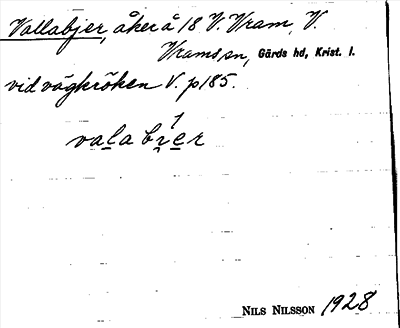 Vallabjer, åker å 18 V. Vram, V.
Vrams sn, Gärds hd, Krist. l.
vid vägkröken V. p 185.
vala bi̯er
NILS NILSSON 1928